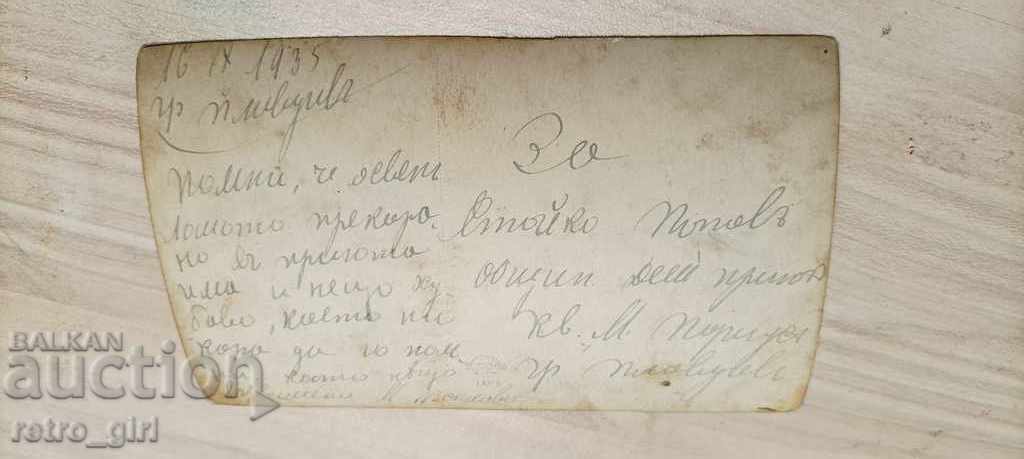 16 IX 1935
гр Пловдивъ
помни, че освенъ
лошото прекара
но въ приюта
има и нещо ху
баво, което ни
кара да го пом
като нещо
За
Стойко Поповъ
общин дет приют
кв. М
гр Пловдивъ
BALKAN
auction
retro_girl